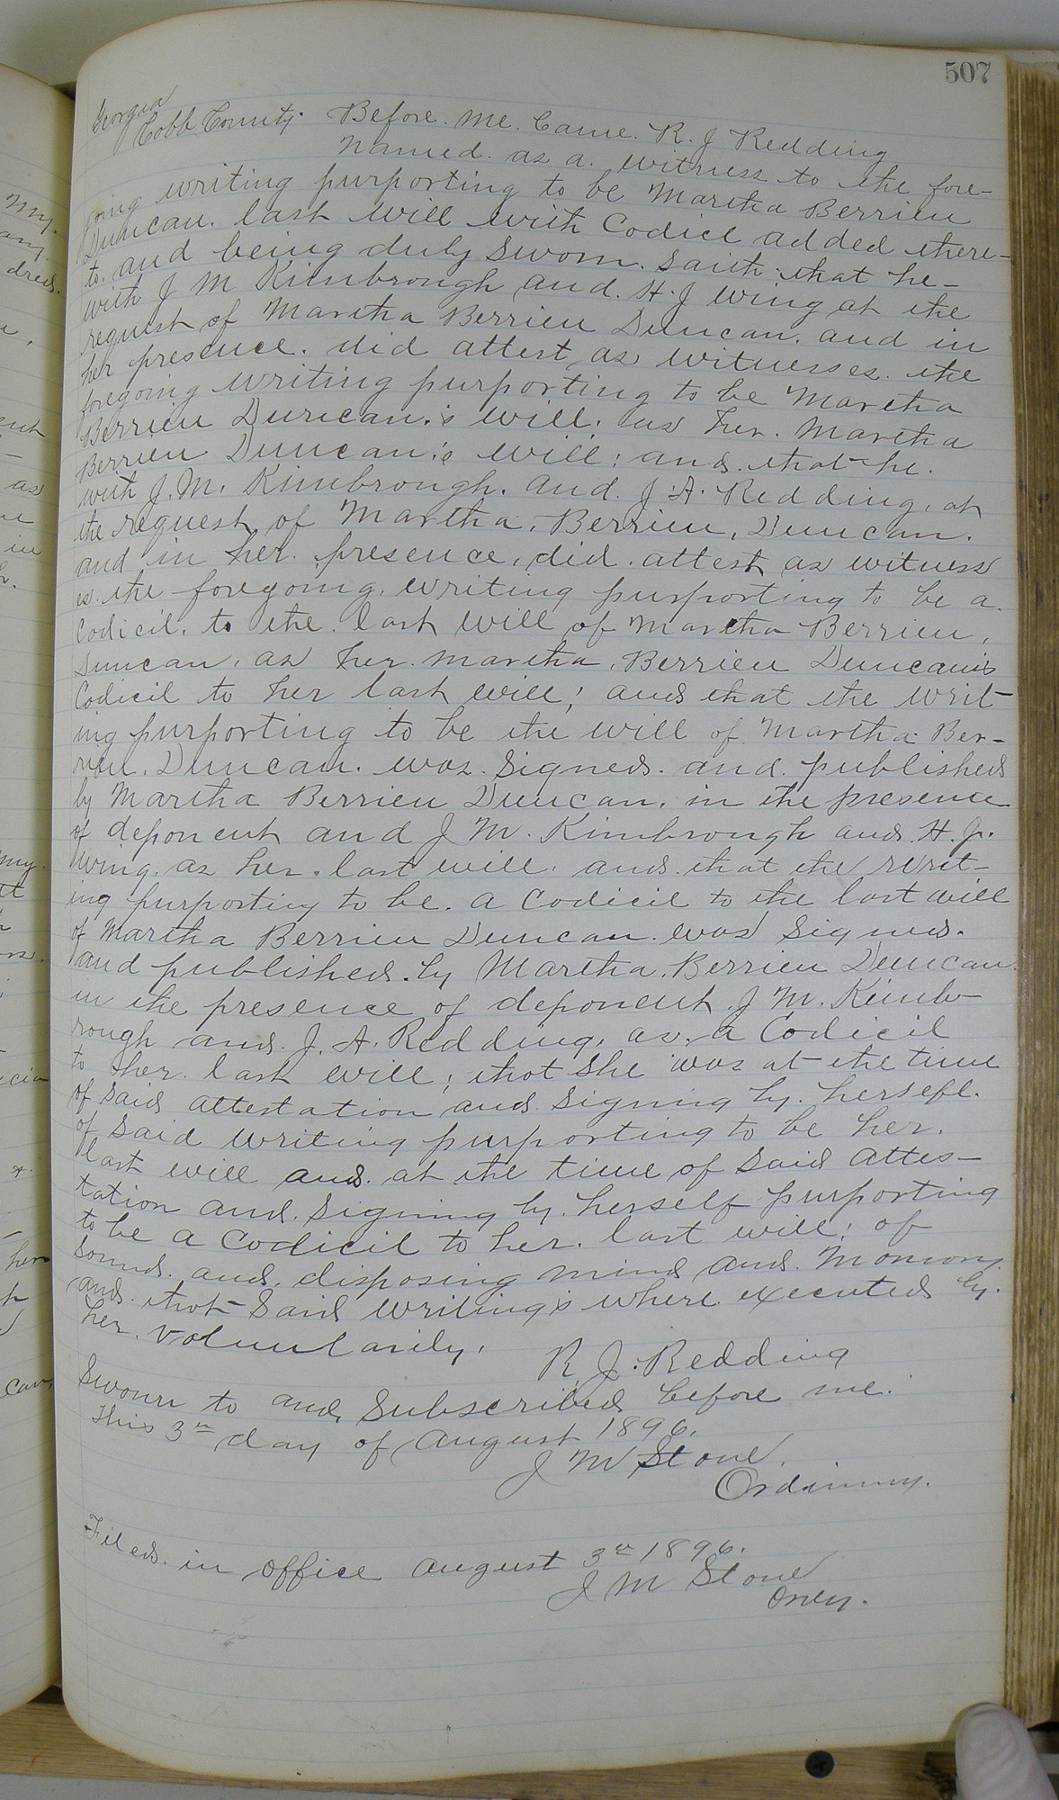 507
Georgia
Cobb County. Before. me. Came. R. J Redding
named. as a. witness to the fore-
going writing purporting to be Martha Berrien
Duncan. last will with Codicil added there-
to. and being duly sworn. saith. that he-
with J M Kimbrough and. H. J Wing at the
request of Martha Berrien Duncan. and in
her presence. did attest as witnesses. the
foregoing writing purporting to be Martha
Berrien Duncan.'s will. as her. Martha
Berrien Duncan's will: and. that he.
with J. M. Kimbrough. and. J. A. Redding, at
the request of Martha. Berrien, Duncan.
and in her. presence, did. attest as witness
es. the foregoing. writing purporting to be a.
Codicil. to the. last will of Martha Berrien,
Duncan, as her. martha, Berrien Duncan's
Codicil to her last will; and that the writ-
ing purporting to be the will of Martha Ber-
rien. Duncan. was. Signed. and. published
by Martha Berrien Duncan. in the presence
of deponent and J M. Kimbrough and. H. J.
Wing. as her. last will. and. that the writ-
ing purporting to be. a Codicil to the last will
of Martha Berrien Duncan. was Signed.
and published. by Martha. Berrien Duncan.
in the presence of deponent. J M. Kimb-
rough and. J. A. Redding, as. a Codicil
to her. last will; that she was at the time
of said attestation and. signing by. herself.
of said writing purporting to be her.
last will and. at the time of said attes-
tation and. signing by. herself purporting
to be a codicil to her. last will; of
sound. and. disposing mind and. momory.
and. that said writing's where executed by.
her. voluntarily.
R. J. Redding
Sworn to and, Subscribed before me.
This 3rd day of August 1896.
J M Stone.
Ordinary.
Filed. in office August 3rd 1896.
J M Stone
Ordy.